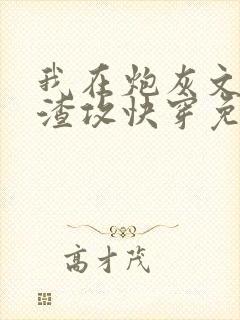 我在炮灰文
渣攻快穿免
高才茂